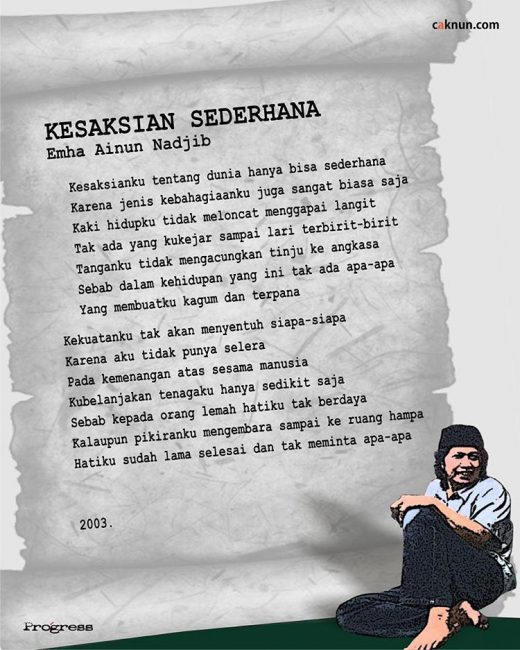 caknun.com
KESAKSIAN SEDERHANA
Emha Ainun Nadjib
Kesaksianku tentang dunia hanya bisa sederhana
Karena jenis kebahagiaanku juga sangat biasa saja
Kaki hidupku tidak meloncat menggapai langit
Tak ada yang kukejar sampai lari terbirit-birit
Tanganku tidak mengacungkan tinju ke angkasa
Sebab dalam kehidupan yang ini tak ada apa-apa
Yang membuatku kagum dan terpana
Kekuatanku tak akan menyentuh siapa-siapa
Karena aku tidak punya selera
Pada kemenangan atas sesama manusia
Kubelanjakan tenagaku hanya sedikit saja
Sebab kepada orang lemah hatiku tak berdaya
Kalaupun pikiranku mengembara sampai ke ruang hampa
Hatiku sudah lama selesai dan tak meminta apa-apa
2003.
Progress